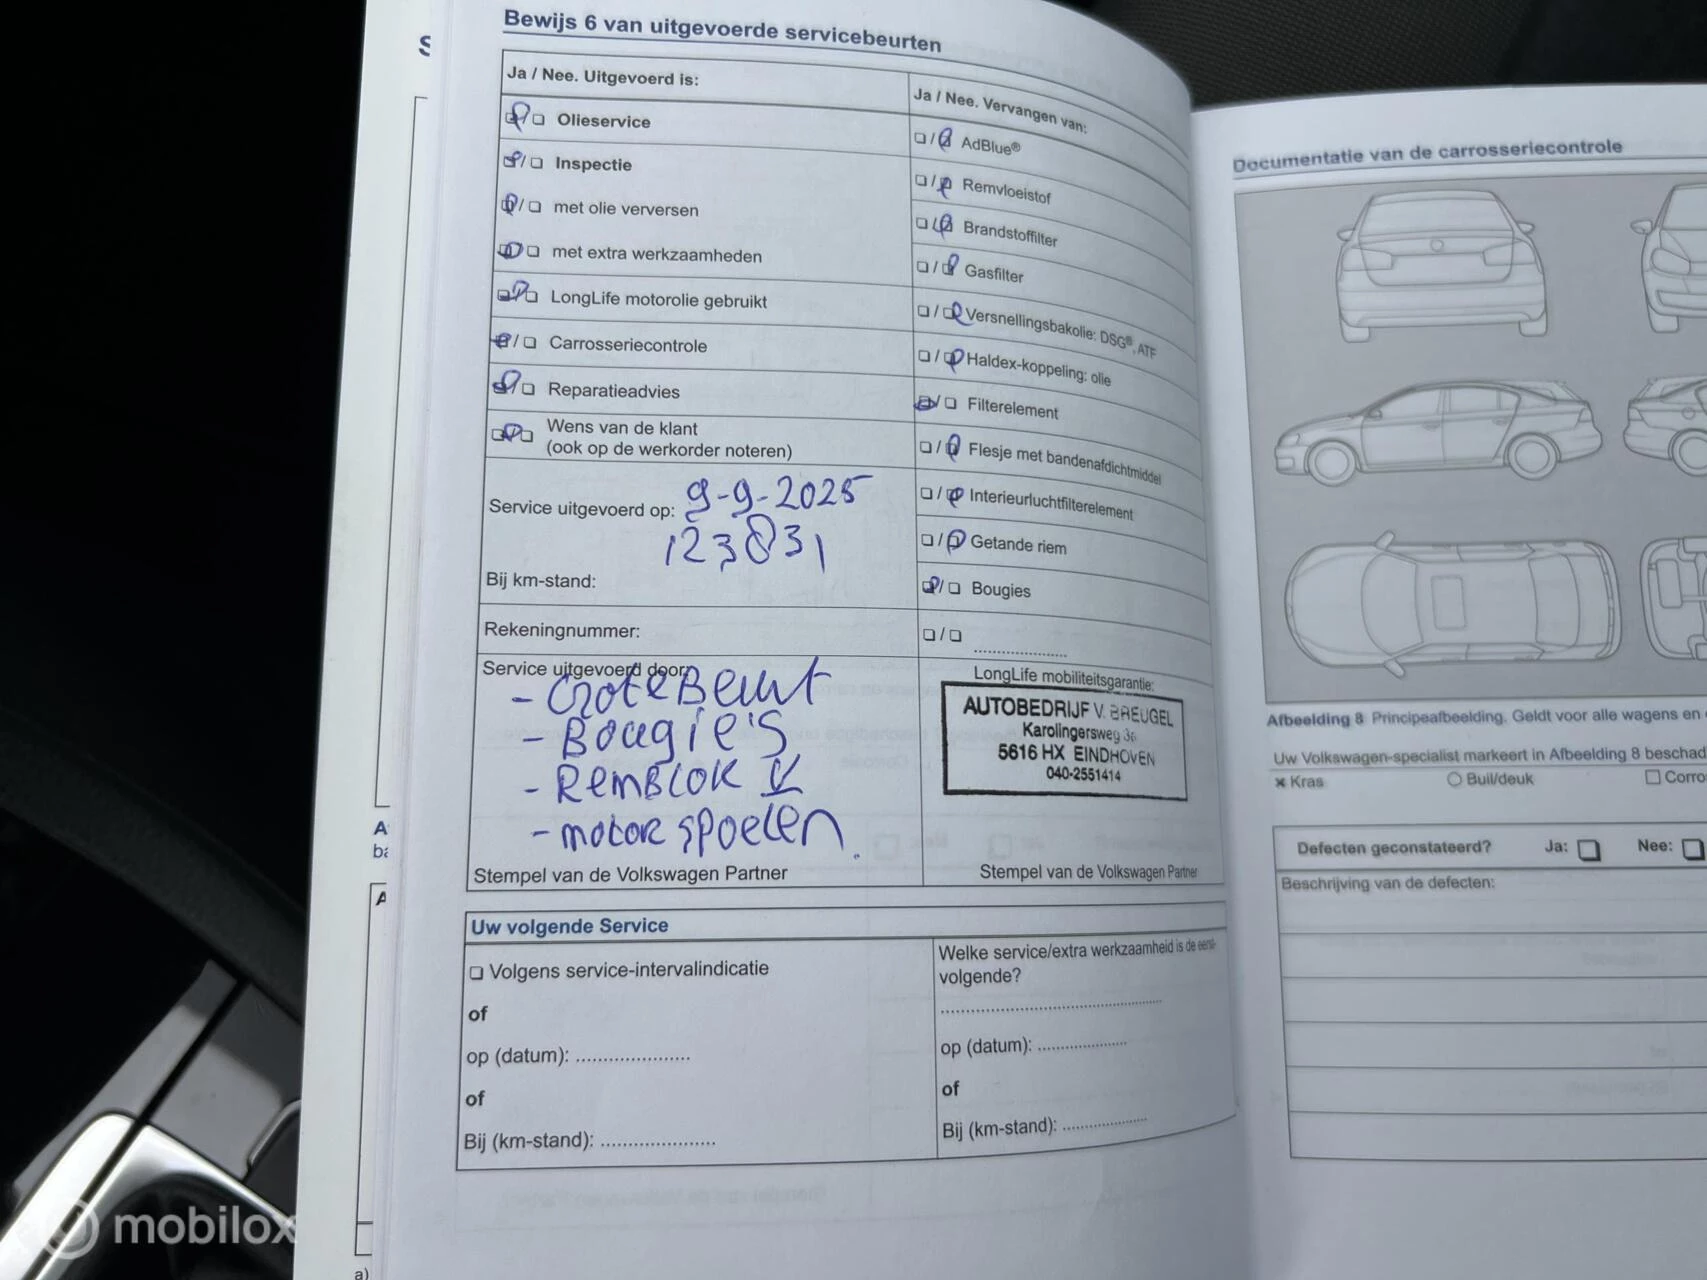 Bewijs 6 van uitgevoerde servicebeurten
Ja / Nee. Uitgevoerd is:
Olieservice
Inspectie
met olie verversen
met extra werkzaamheden
LongLife motorolie gebruikt
Carrosseriecontrole
Reparatieadvies
Wens van de klant
(ook op de werkorder noteren)
Service uitgevoerd op: 9-9-2025
123831
Bij km-stand:
Rekeningnummer:
Service uitgevoerd door:
- Grote Beurt
- Bougie's
- RemBlok V
- motor spoelen
Stempel van de Volkswagen Partner
Ja / Nee. Vervangen van:
AdBlue®
Remvloeistof
Brandstoffilter
Gasfilter
Versnellingsbakolie: DSG®, ATF
Haldex-koppeling: olie
Filterelement
Flesje met bandenafdichtmiddel
Interieurluchtfilterelement
Getande riem
Bougies
LongLife mobiliteitsgarantie:
AUTOBEDRIJF V. BREUGEL
Karolingersweg 36
5616 HX EINDHOVEN
040-2551414
Stempel van de Volkswagen Partner
Uw volgende Service
Volgens service-intervalindicatie
of
op (datum): ....................
of
Bij (km-stand): ....................
Welke service/extra werkzaamheid is de eerst-
volgende?
op (datum): ................
of
Bij (km-stand): ................
Documentatie van de carrosseriecontrole
Afbeelding 8 Principeafbeelding. Geldt voor alle wagens en
Uw Volkswagen-specialist markeert in Afbeelding 8 beschad
Kras Buil/deuk Corro
Defecten geconstateerd? Ja: Nee:
Beschrijving van de defecten:
mobilox